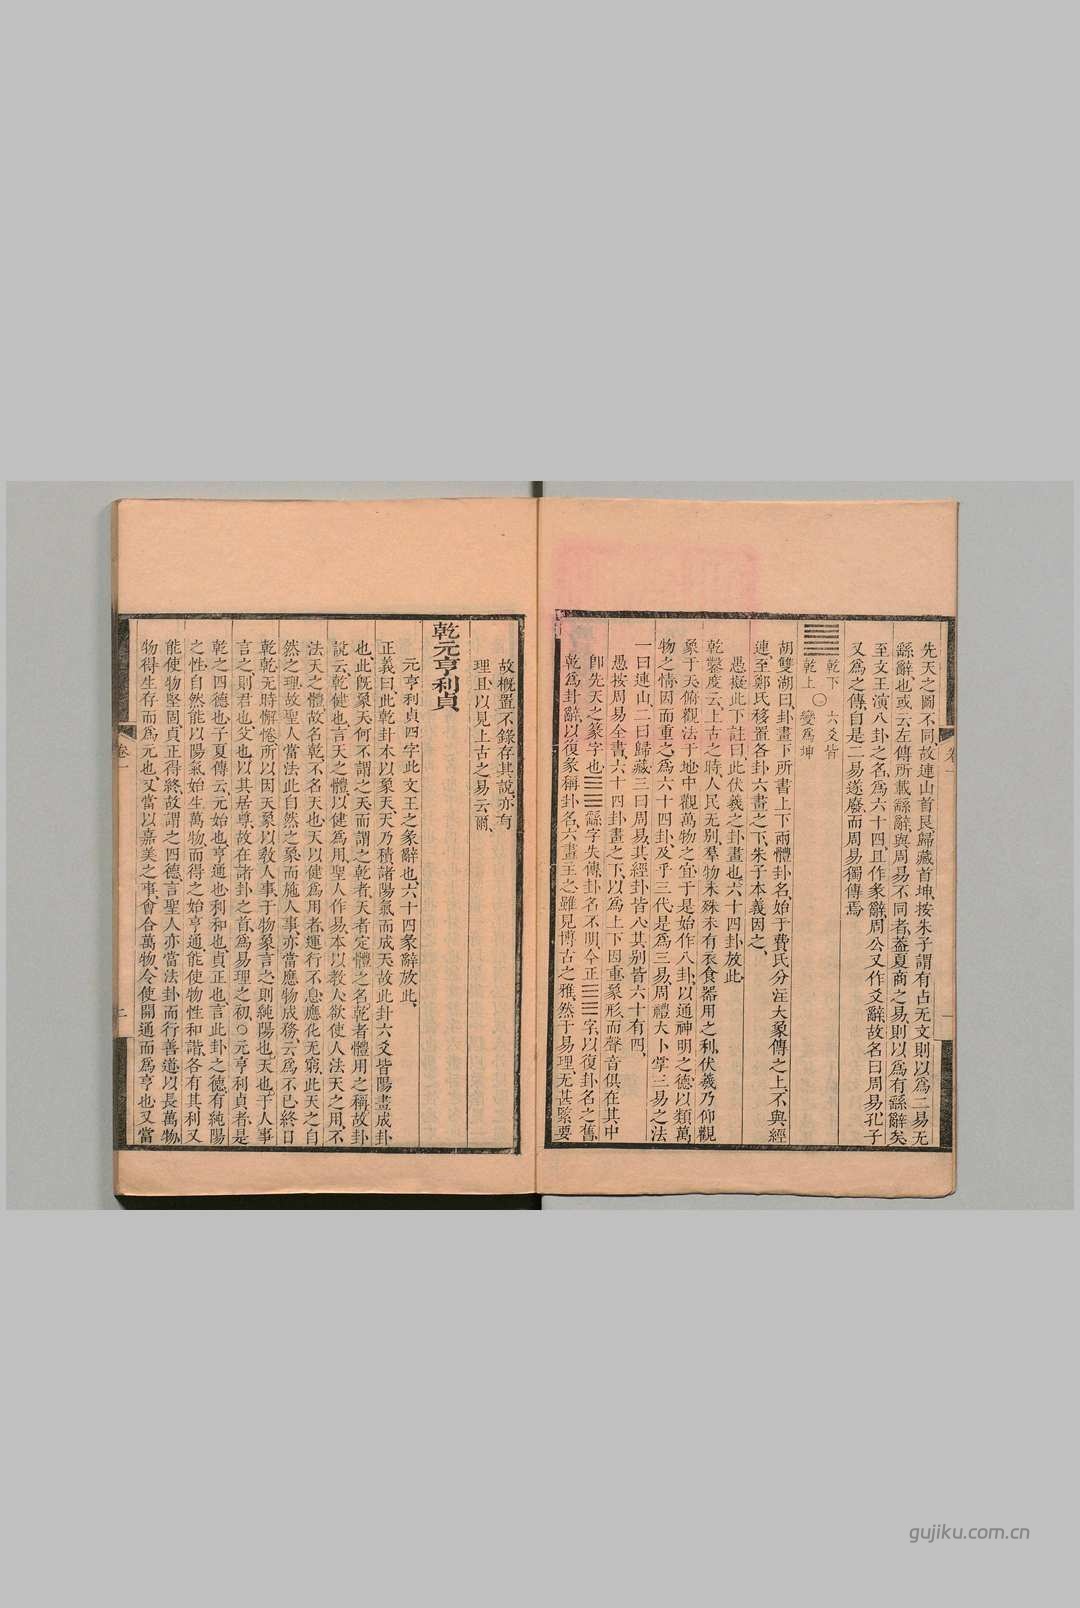 先天之圖不同故連山首艮歸藏首坤按朱子謂有占无文則以爲二易无
繇辭也或云左傳所載繇辭與周易不同者葢夏商之易則以爲有繇辭矣
至文王演八卦之名爲六十四且作彖辭周公又作爻辭故名曰周易孔子
又爲之傳自是二易遂廢而周易獨傳焉
乾下
乾上
六爻皆
變爲坤
胡雙湖曰卦畫下所書上下兩體卦名始于費氏分注大象傳之上不與經
連至鄭氏移置各卦六畫之下朱子本義因之
愚擬此下註曰此伏羲之卦畫也六十四卦放此
乾鑿度云上古之時人民无别羣物未殊未有衣食器用之利伏羲乃仰觀
象于天俯觀法于地中觀萬物之宜于是始作八卦以通神明之德以類萬
物之情因而重之爲六十四卦及乎三代是爲三易周禮大卜掌三易之法
一曰連山二曰歸藏三曰周易其經卦皆八其别皆六十有四
愚按周易全書六十四卦畫之下以爲上下因重象形而聲音俱在其中
卽先天之篆字也䷀繇字失傳卦名不明今正䷀字以復卦名之舊
乾爲卦辭以復彖稱卦名六畫主之雖見博古之雅然于易理无甚緊要
卷一
一
故概置不錄存其說亦有
理且以見上古之易云爾
乾元亨利貞
元亨利貞四字此文王之彖辭也六十四彖辭放此
正義曰此乾卦本以象天天乃積諸陽氣而成天故此卦六爻皆陽畫成卦
也此旣象天何不謂之天而謂之乾者天者定體之名乾者體用之稱故卦
說云乾健也言天之體以健爲用聖人作易本以教人欲使人法天之用不
法天之體故名乾不名天也天以健爲用者運行不息應化无窮此天之自
然之理故聖人當法此自然之象而施人事亦當應物成務云爲不已終日
乾乾无時懈惓所以因天象以教人事于物象言之則純陽也天也于人事
言之則君也父也以其居尊故在諸卦之首爲易理之初○元亨利貞者是
乾之四德也子夏傳云元始也亨通也利和也貞正也言此卦之德有純陽
之性自然能以陽氣始生萬物而得之始亨通能使物性和諧各有其利又
能使物堅固貞正得終故謂之四德言聖人亦當法卦而行善道以長萬物
物得生存而爲元也又當以嘉美之事會合萬物令使開通而爲亨也又當
卷一
二
gujiku.com.cn